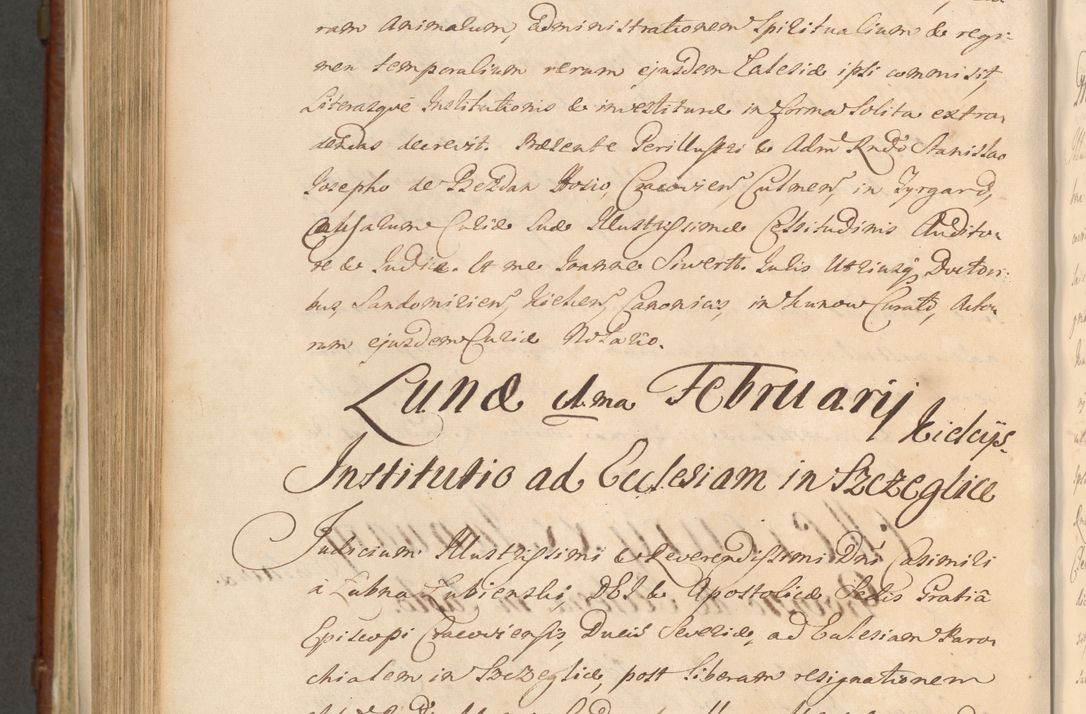 ram Animarum, administrationem Spiritualium & regi-
men temporalium rerum ejusdem Ecclesiæ ipsi commisit,
Literasque Institutionis & investituræ in forma solita extra-
dendas decrevit. Præsente Perillustri & Admº Rndo Stanislao
Josepho de Bezdan Hosio, Cracovien, Culmen, in Tyrgard,
Causarum Curiæ Suæ Illustrissimæ Celsitudinis Audito-
re & Judice. Et me Joanne Siwerth Juris Utriusq Doctori-
bus, Sandomirien, Kielcen, Canonicis, in Kunow Curato, Acto-
rum ejusdem Curiæ Notario.
Lunæ 1ma Februarij Kielcijs.
Institutio ad Ecclesiam in Szczeglice
Judicium Illustrissimi & Reverendissimi Dni Casimiri
à Lubna Łubienski, DEI & Apostolicæ Sedis Gratiâ
Episcopi Cracoviensis, Ducis Severiæ, ad Ecclesiam Paro-
chialem in Szczeglice, post liberam resignationem